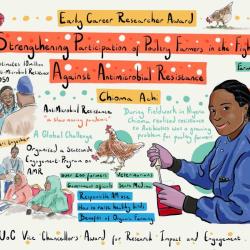 Early Career Researcher Award
Strengthening Participation of Poultry Farmers in the Fight
Against Antimicrobial Resistance
Chioma Achi
Antimicrobial Resistance
"a slow moving pandemic"
A Global Challenge
Organised a Statewide
Engagement Program on
AMR
During Fieldwork in Nigeria
Chioma realised resistance
to Antibiotics was a growing
problem for poultry farmers
over 200 farmers
Veterinarians
Government agents
Social Media
Responsible AM use
How to raise healthy birds
Benefits of Organic Farming
Vice-Chancellors' Award for Research Impact and Engagement